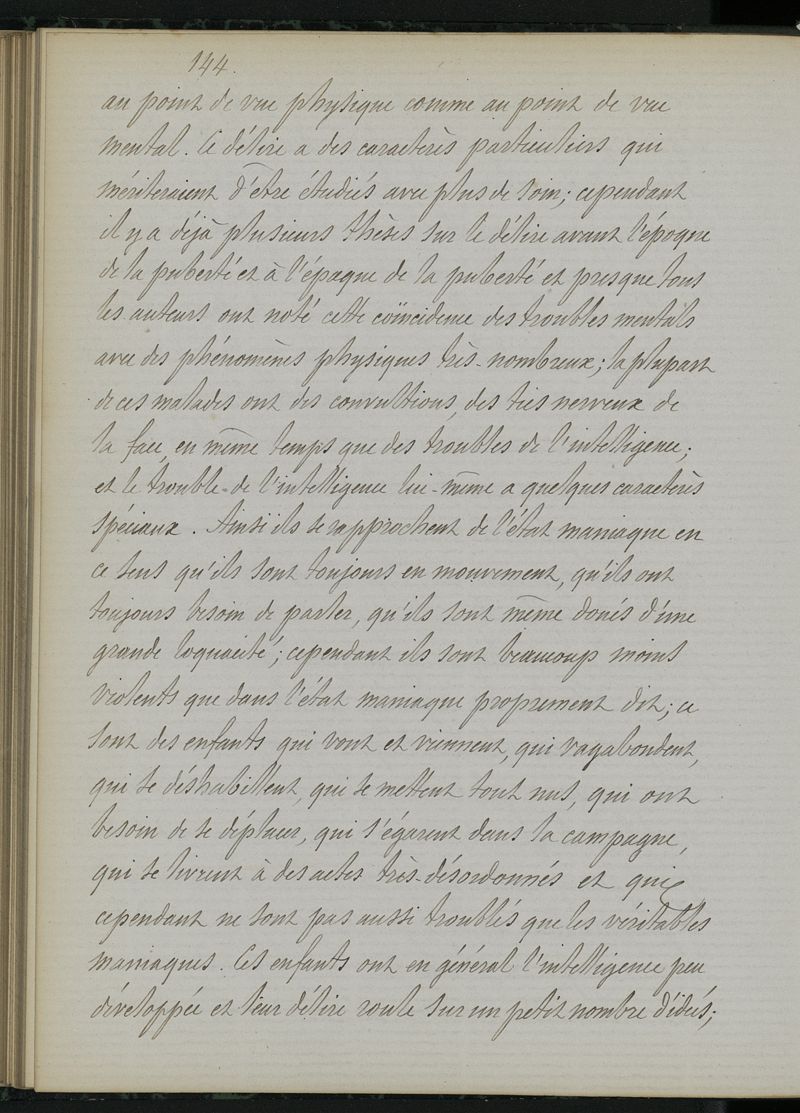 144.
au point de vue physique comme au point de vue
mental. Ce délire a des caractères particuliers qui
mériteraient d'être étudiés avec plus de soin; cependant
il y a déjà plusieurs thèses sur le délire avant l'époque
de la puberté et à l'époque de la puberté et presque tous
les auteurs ont noté cette coïncidence des troubles mentals
avec des phénomènes physiques très-nombreux; la plupart
de ces malades ont des convultions, des tics nerveux de
la face, en même temps que des troubles de l'intelligence;
et le trouble de l'intelligence lui-même a quelques caractères
spéciaux. Ainsi ils se rapprochent de l'état maniaque en
ce sens qu'ils sont toujours en mouvement, qu'ils ont
toujours besoin de parler, qu'ils sont même doués d'une
grande loquacité; cependant ils sont beaucoup moins
violents que dans l'état maniaque proprement dit; ce
sont des enfants qui vont et viennent, qui vagabondent,
qui se déshabillent, qui se mettent tout nus, qui ont
besoin de se déplacer, qui s'égarent dans la campagne,
qui se livrent à des actes très-désordonnés et qui
cependant ne sont pas aussi troublés que les véritables
maniaques. Ces enfants ont en général l'intelligence peu
développée et leur délire roule sur un petit nombre d'idées;